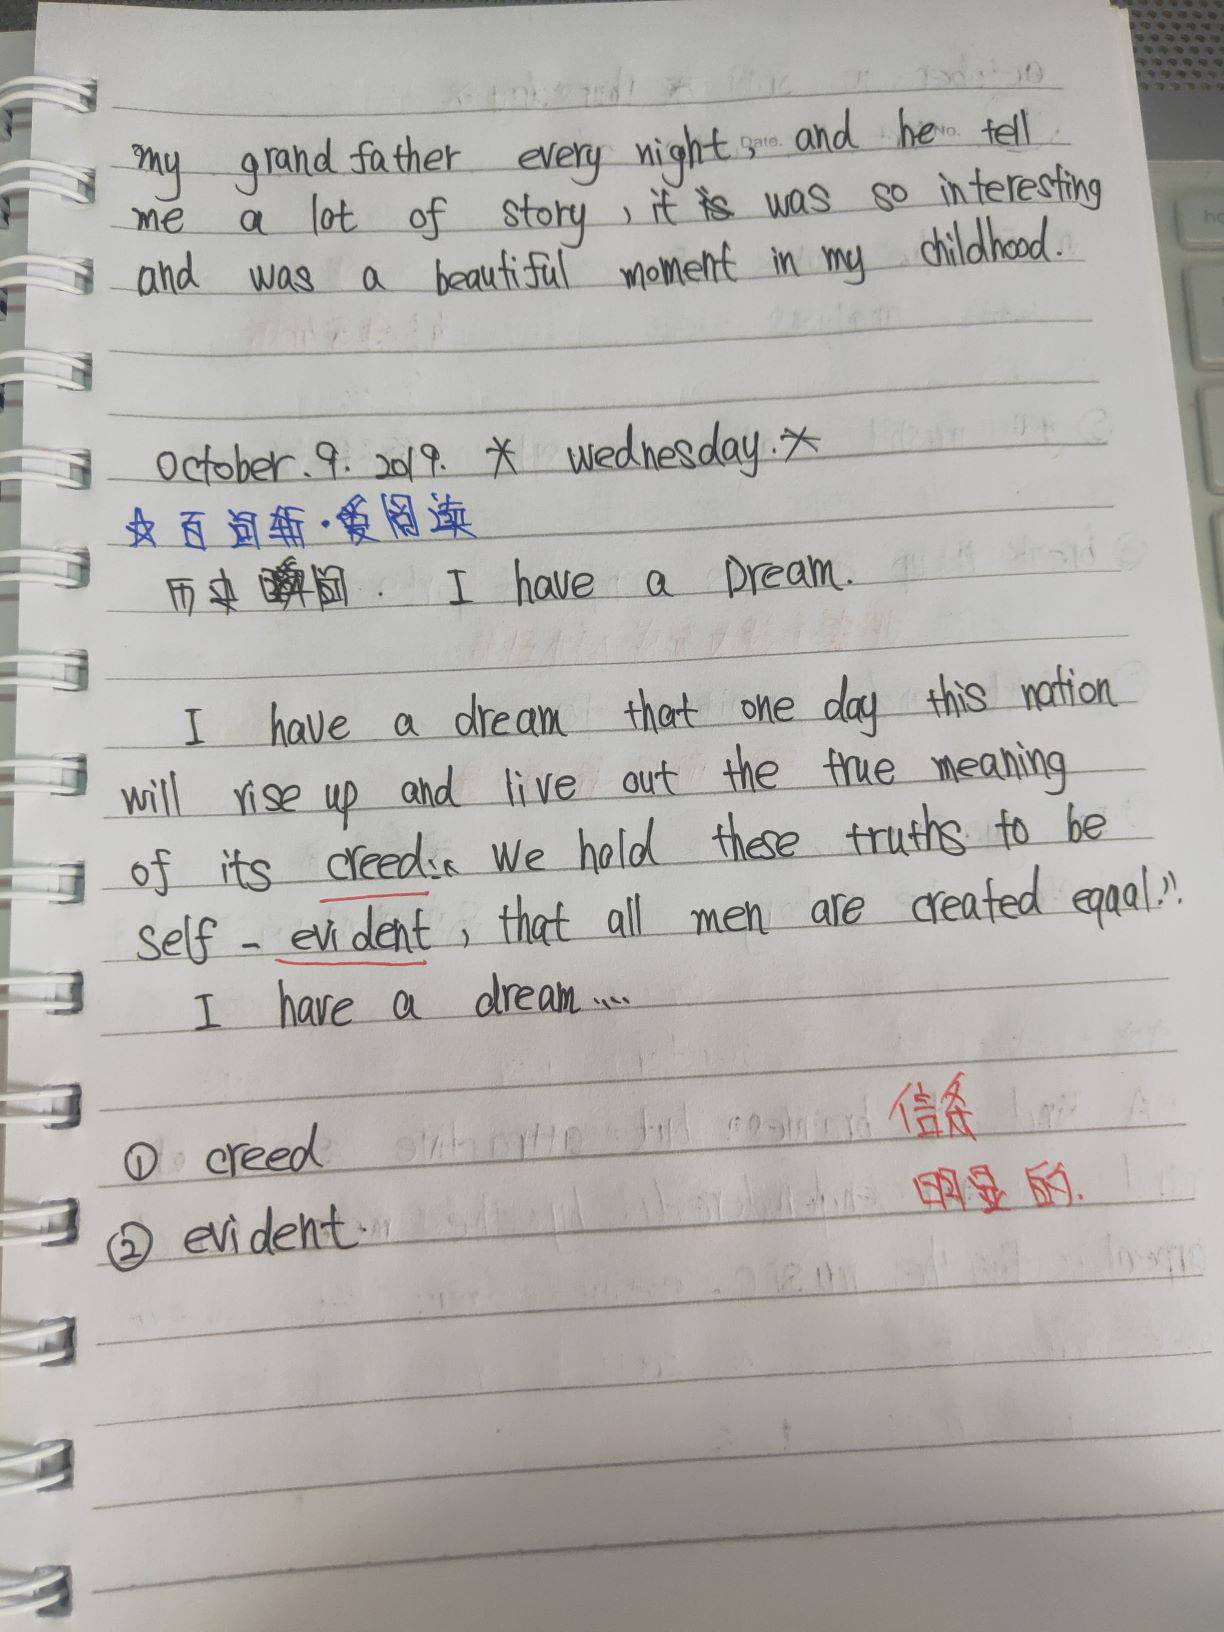 my grand father every night, and he tell
me a lot of story, it is was so interesting
and was a beautiful moment in my childhood.
october.9. 2019. * wednesday.*
☆百词斩·爱阅读
历史瞬间. I have a Dream.
I have a dream that one day this nation
will rise up and live out the true meaning
of its creed:“ We hold these truths to be
self-evident, that all men are created equal.”
I have a dream....
① creed 信条
② evident. 明显的.